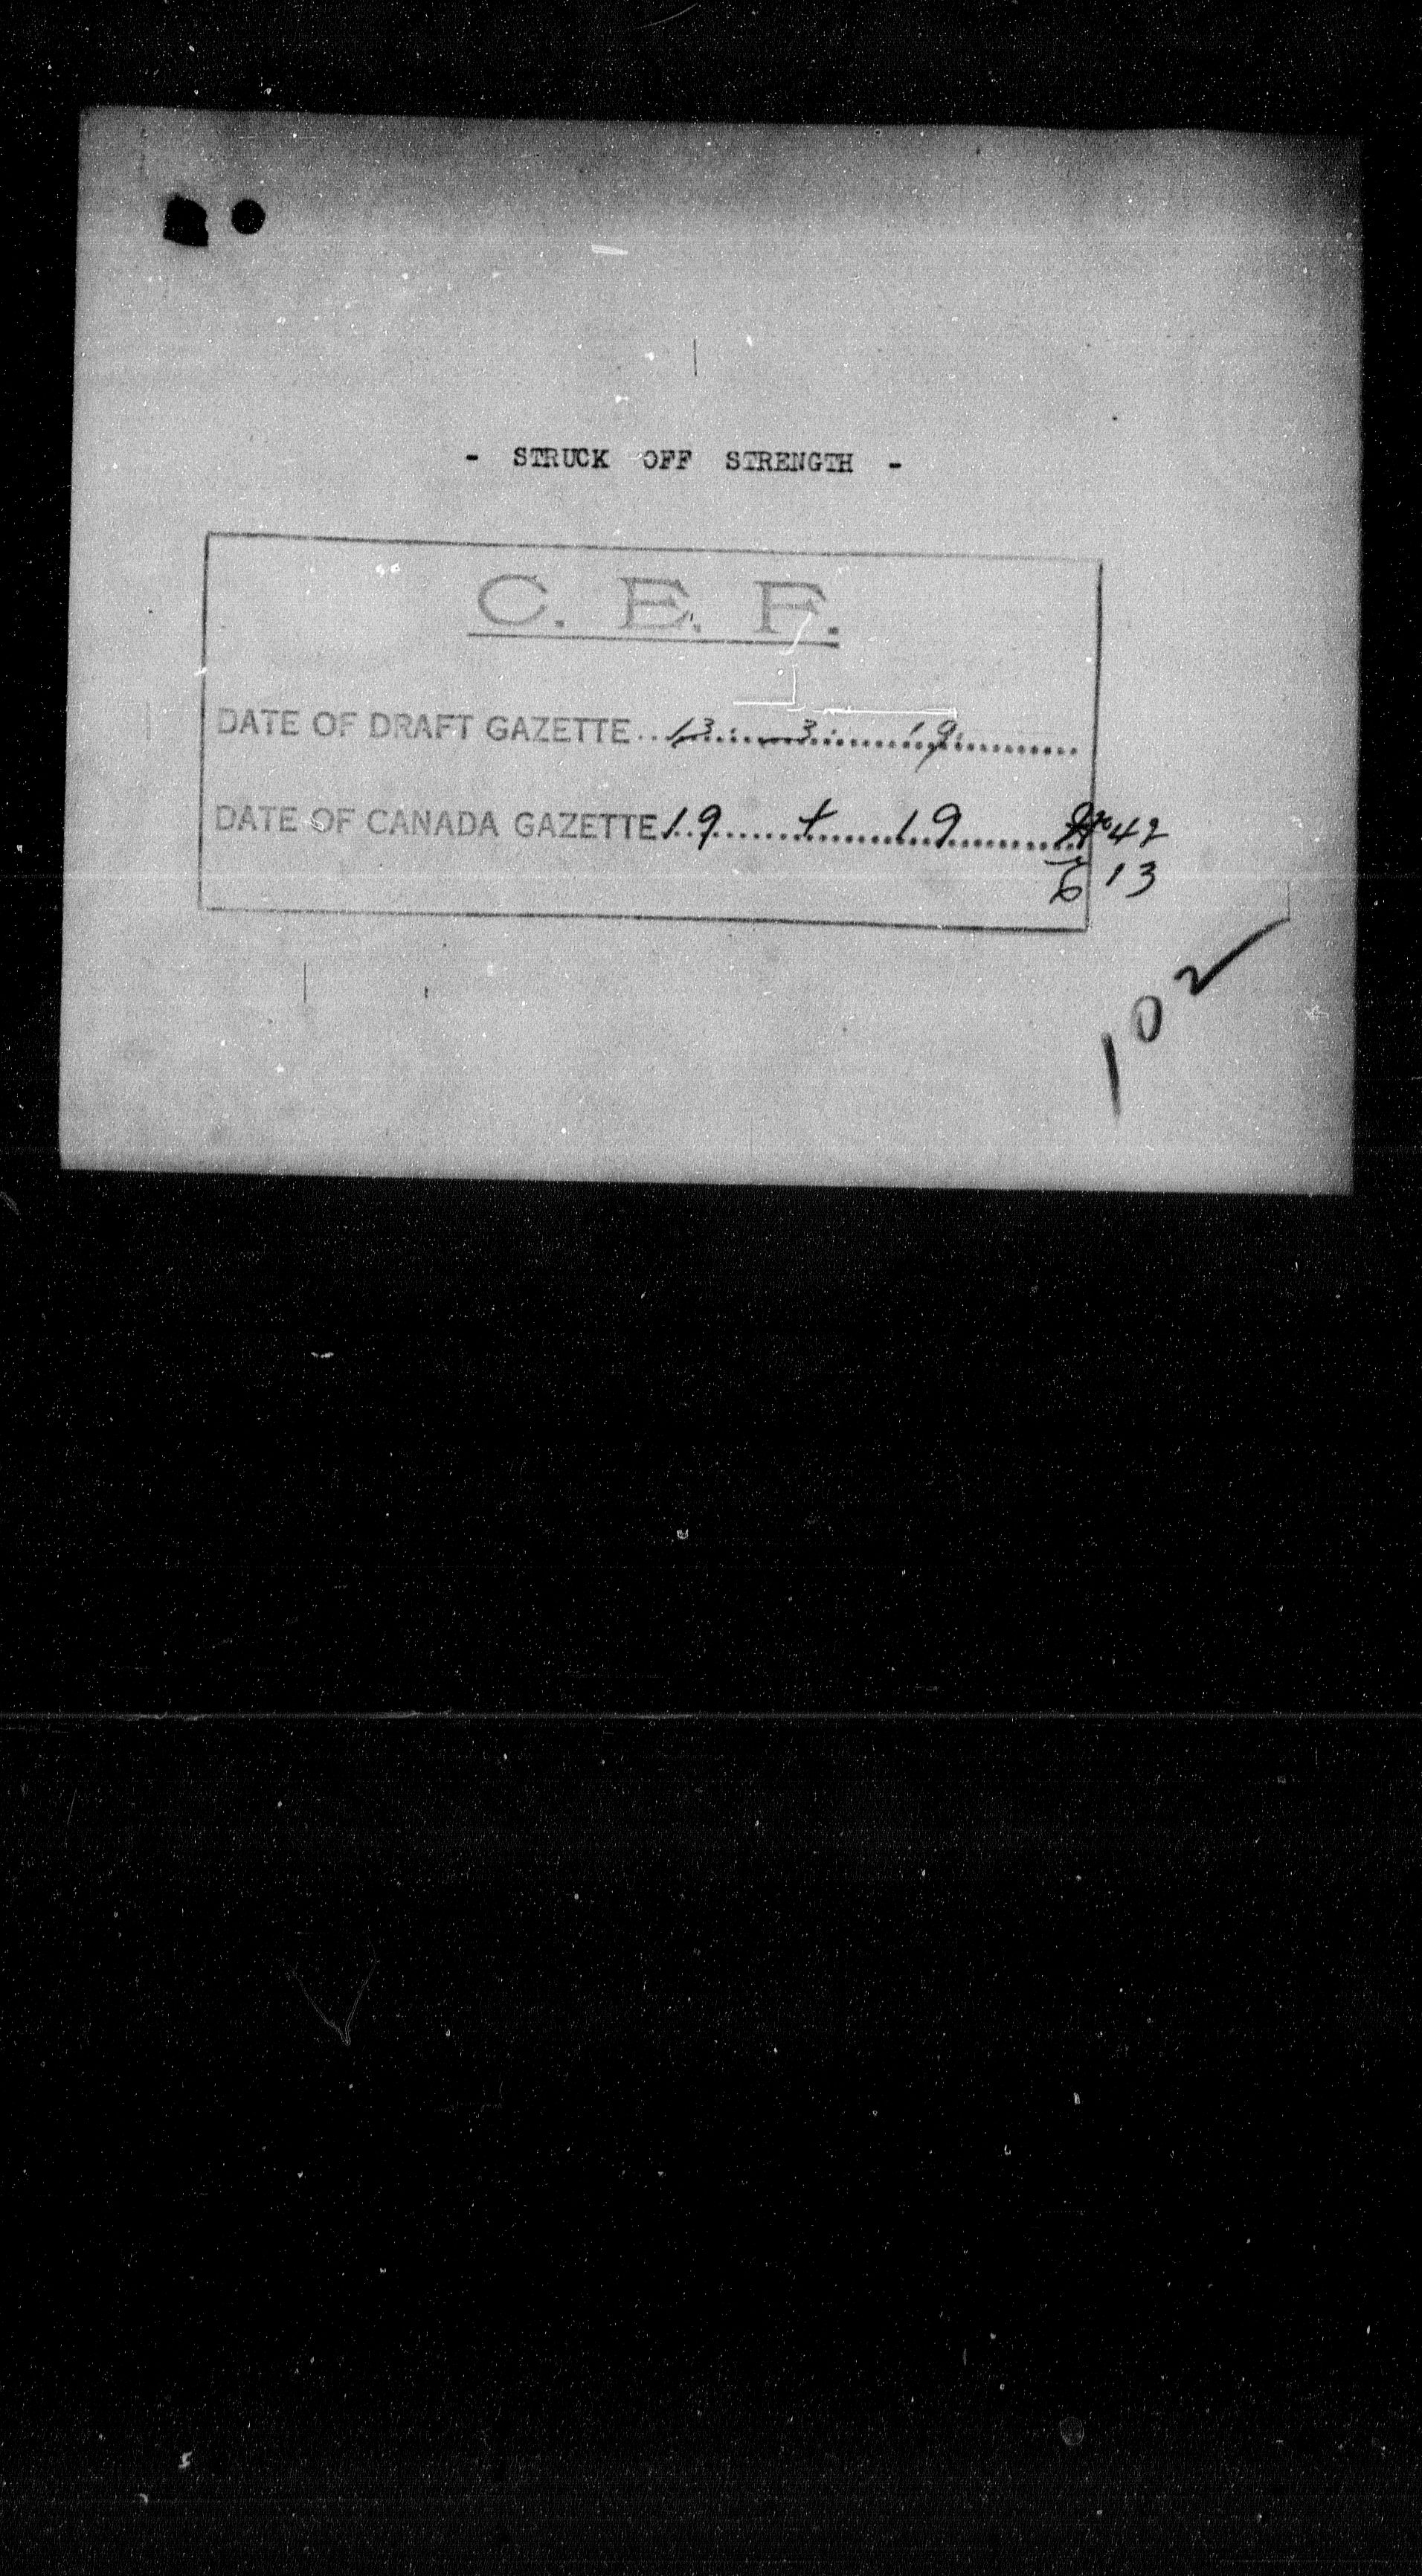 - STRUCK OFF STRENGTH -
C. E. F.
DATE OF DRAFT GAZETTE 13 3 19
DATE OF CANADA GAZETTE 19 4 19 No 42
13
102